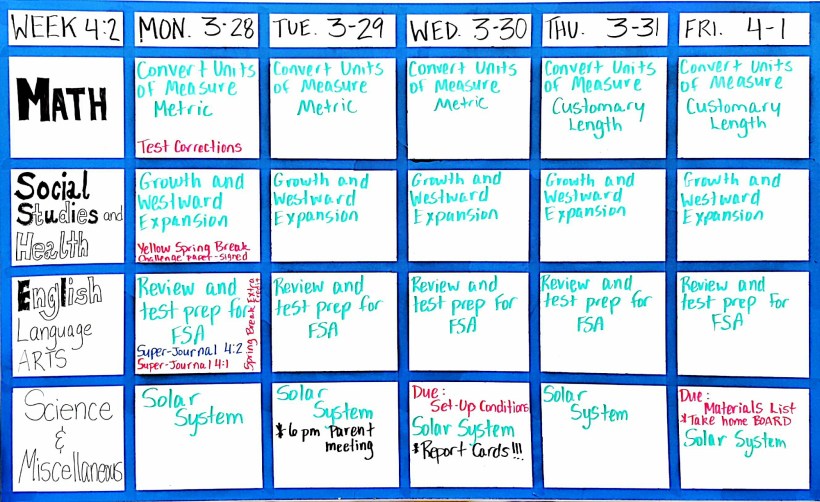 WEEK 4:2
MON. 3-28
TUE. 3-29
WED. 3-30
THU. 3-31
FRI. 4-1
MATH
Convert Units
of Measure
Metric
Test Corrections
Convert Units
of Measure
Metric
Convert Units
of Measure
Metric
Convert Units
of Measure
Customary
Length
Convert Units
of Measure
Customary
Length
Social
Studies and
Health
Growth and
Westward
Expansion
Yellow Spring Break
Challenge Paper-signed
Growth and
Westward
Expansion
Growth and
Westward
Expansion
Growth and
Westward
Expansion
Growth and
Westward
Expansion
English
Language
ARTS
Review and
test prep for
FSA
Super-Journal 4:2
Super-Journal 4:1
Spring Break Extra
Credit
Review and
test prep for
FSA
Review and
test prep For
FSA
Review and
test prep for
FSA
Review and
test prep For
FSA
Science
&
Miscellaneous
Solar
System
Solar
System
*6 pm Parent
meeting
Due:
Set-Up Conditions
Solar System
*Report Cards!!!
Solar
System
Due:
Materials List
*Take home BOARD
Solar System